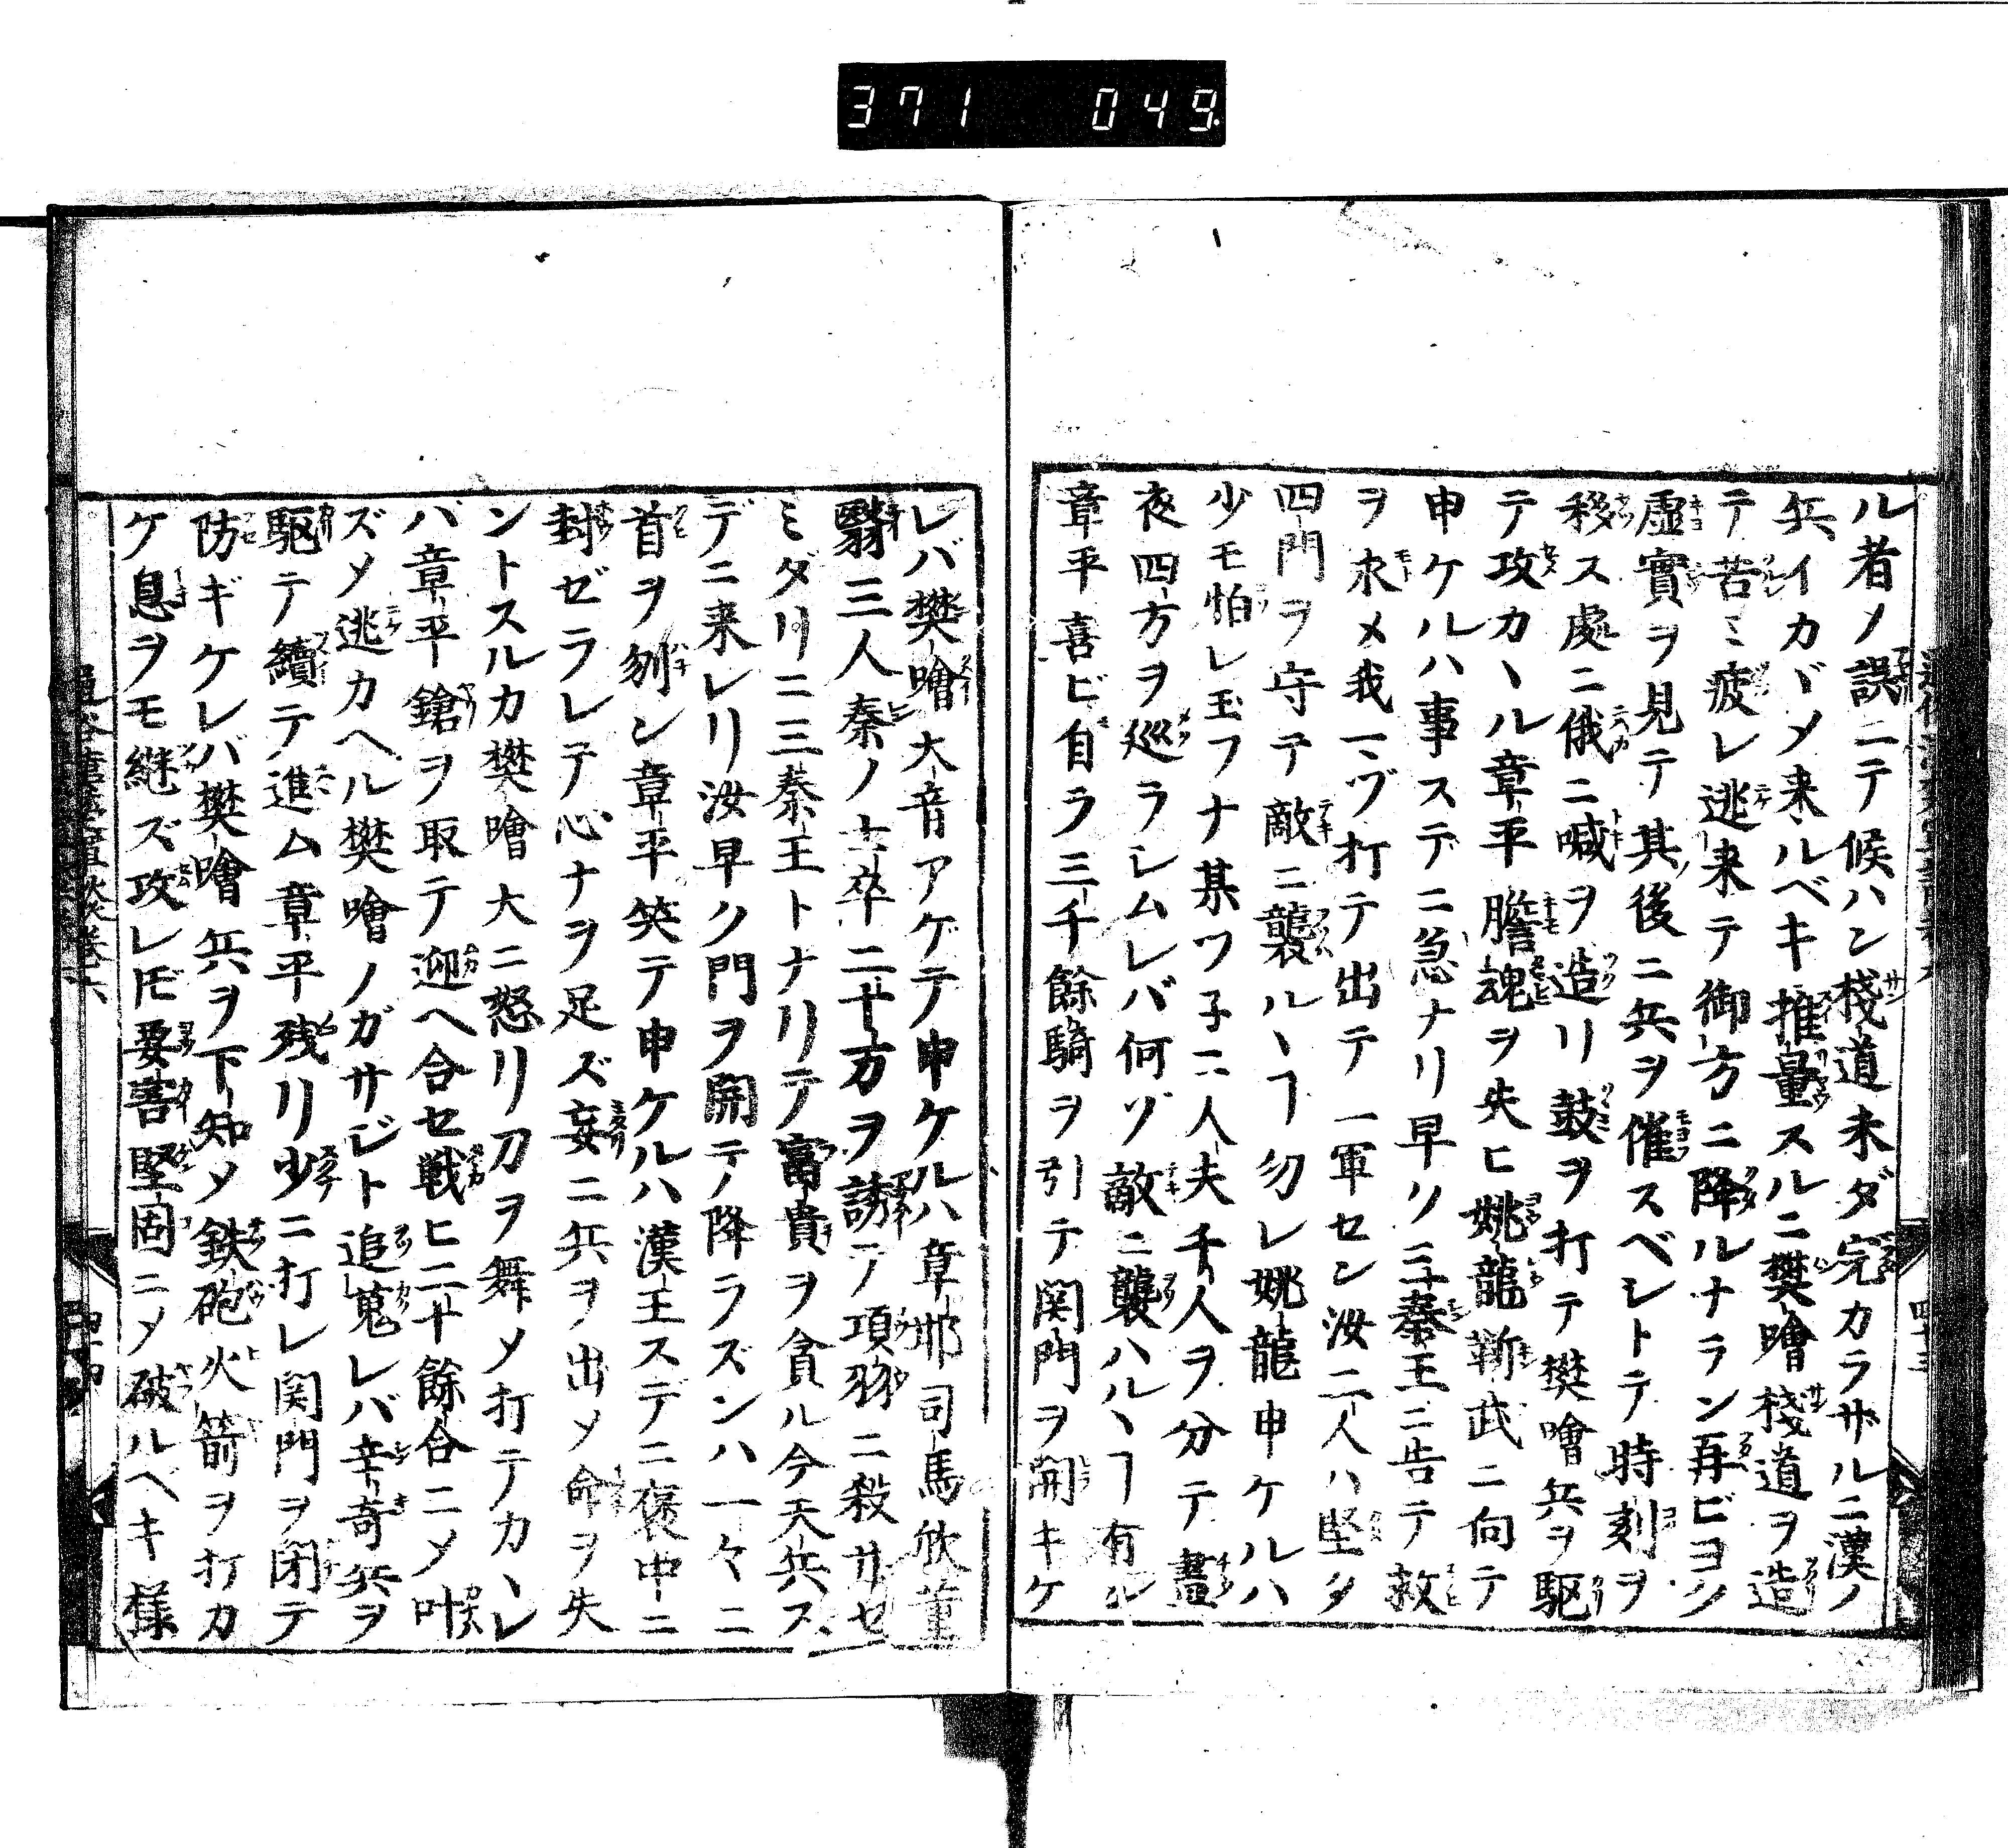 371 049
ル者ノ誤ニテ候ハン棧道未ダ完カラサルニ漢ノ
兵イカヾメ来ルベキ推量スルニ樊噲棧道ヲ造
テ苦ミ疲レ逃来テ御方ニ降ルナラン再ビヨク
虚實ヲ見テ其後ニ兵ヲ催スベシトテ時刻ヲ
移ス處ニ俄ニ喊ヲ造リ鼓ヲ打テ樊噲兵ヲ駆
テ攻カヽル章平膽魂ヲ失ヒ姚龍靳武ニ向テ
申ケルハ事スデニ急ナリ早ク三秦王ニ告テ救
ヲ求メ我一ヅ打テ出テ一軍セン汝二人ハ堅ク
四門ヲ守テ敵ニ襲ルヽヿ勿レ姚龍申ケルハ
少モ怕レ玉フナ某ワ子二人夫千人ヲ分テ晝
夜四方ヲ巡ラシムレバ何ゾ敵ニ襲ハルヽヿ有ル
章平喜ビ自ラ三千餘騎ヲ引テ関門ヲ開キケ
レバ樊噲大音アゲテ申ケルハ章邯司馬欣董
翳三人秦ノ士卒二十万ヲ誘テ項羽ニ殺サセ
ミダリニ三秦王トナリテ富貴ヲ貪ル今天兵ス
デニ来レリ汝早ク門ヲ開テ降ラズンハ一々ニ
首ヲ刎ン章平笑テ申ケルハ漢王スデニ褒中ニ
封ゼラレテ心ナヲ足ズ妄ニ兵ヲ出メ命ヲ失
ントスルカ樊噲大ニ怒リ刀ヲ舞メ打テカヽレ
バ章平鎗ヲ取テ迎ヘ合セ戦ヒ二十餘合ニメ叶
ズメ逃カヘル樊噲ノガサジト追蒐レバ辛奇兵ヲ
駆テ續テ進ム章平残リ少ニ打レ関門ヲ閉テ
防ギケレバ樊噲兵ヲ下知メ鉄砲火箭ヲ打カ
ケ息ヲモ継ズ攻レ𪜈要害堅固ニメ破ルヘキ様